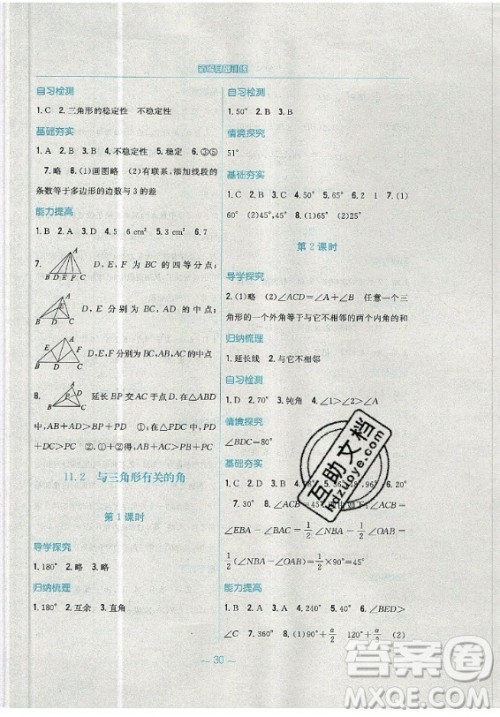 自习检测
1.C 2.三角形的稳定性 不稳定性
基础夯实
1.A 2.B 3.4.不稳定性,稳定 6.③⑤
7.略 8.(1)画图略 (2)有联系,添加线段的
条数等于多边形的边数与3的差
能力提高
1.B 2.D 3.A 4.5 5.6 cm² cm² 6.7
7. D、E、F 为 BC 的四等分点;
D、E 分别为 BC、AD 的中点;
D、E、F 分别为 BC、AB、AD 的中点.
8. 延长 BP 交 AC 于点 D,在△ABD
中,AB+AD>BP+PD,在△PDC 中,PD
+DC>PC ∴AB+AC>PB+PC
11.2 与三角形有关的角
第1课时
导学探究
1.180° 2.略 3.略
归纳梳理
1.180° 2.互余 3.直角
自习检测
1.50° 2.B 3.B
情境探究
51°
基础夯实
60° (2)45°,45° (3)
第2课时
导学探究
2.(1)略 (2)∠ACD=∠A+ 任意一个三
角形的一个外角等于与它不相邻的两个内角的和
归纳梳理
1.延长线 2.与它不相邻
自习检测
1.70° 3.钝角 4.∠1>∠2>∠A
情境探究
∠BDC=80°
基础夯实
1.C 2.B 3.A 4.30° 5.
7.30° 8.
∠EBA-∠BAC=½∠NBA-½∠OAB
=½(∠NBA-∠OAB)=½×90°=45°
能力提高
1.B 2.A 5.∠BED>
∠C 7.360° 8.(1)90°+α/2 120°+α/3
互助文档
mizuoye.com
答案圈
MXQE.COM
~ 30 ~